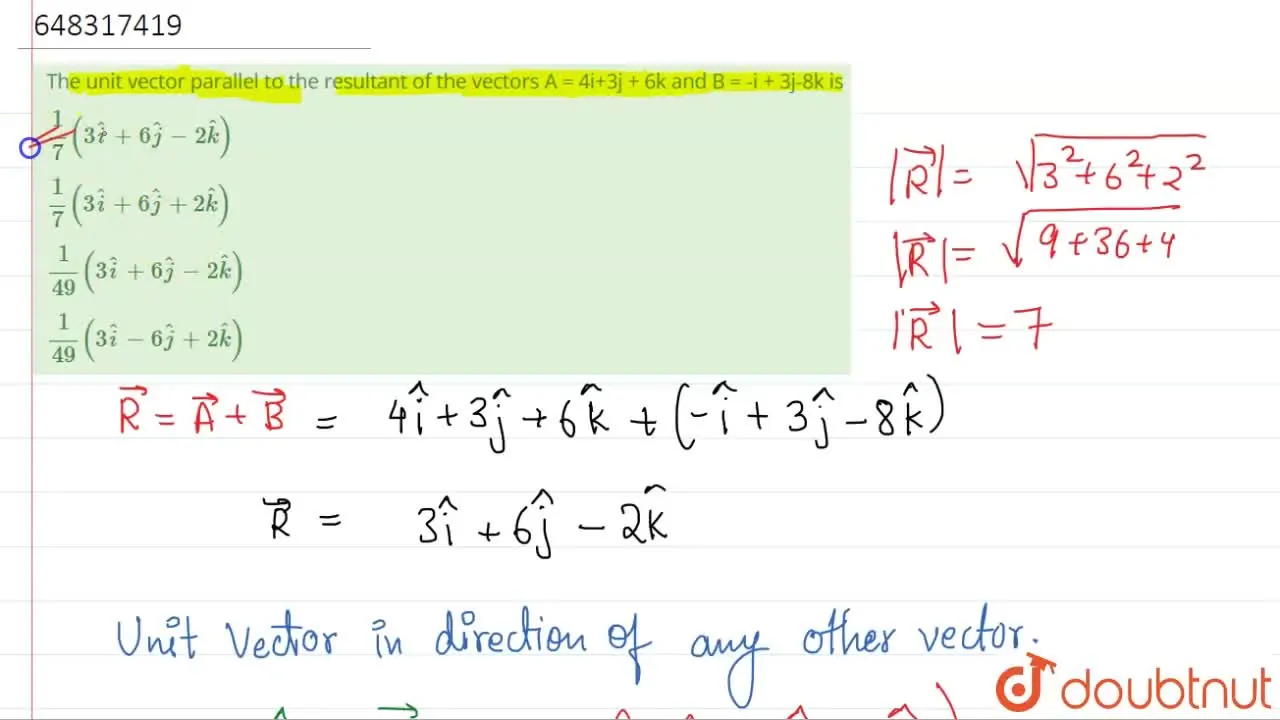 648317419
The unit vector parallel to the resultant of the vectors A = 4i+3j + 6k and B = -i + 3j-8k is
1/7 (3î + 6ĵ − 2k̂)
1/7 (3î + 6ĵ + 2k̂)
1/49 (3î + 6ĵ − 2k̂)
1/49 (3î − 6ĵ + 2k̂)
|R⃗| = √(3² + 6² + 2²)
|R⃗| = √(9 + 36 + 4)
|R⃗| = 7
R⃗ = A⃗ + B⃗ = 4î + 3ĵ + 6k̂ + (-î + 3ĵ - 8k̂)
R⃗ = 3î + 6ĵ − 2k̂
Unit Vector in direction of any other vector.
doubtnut